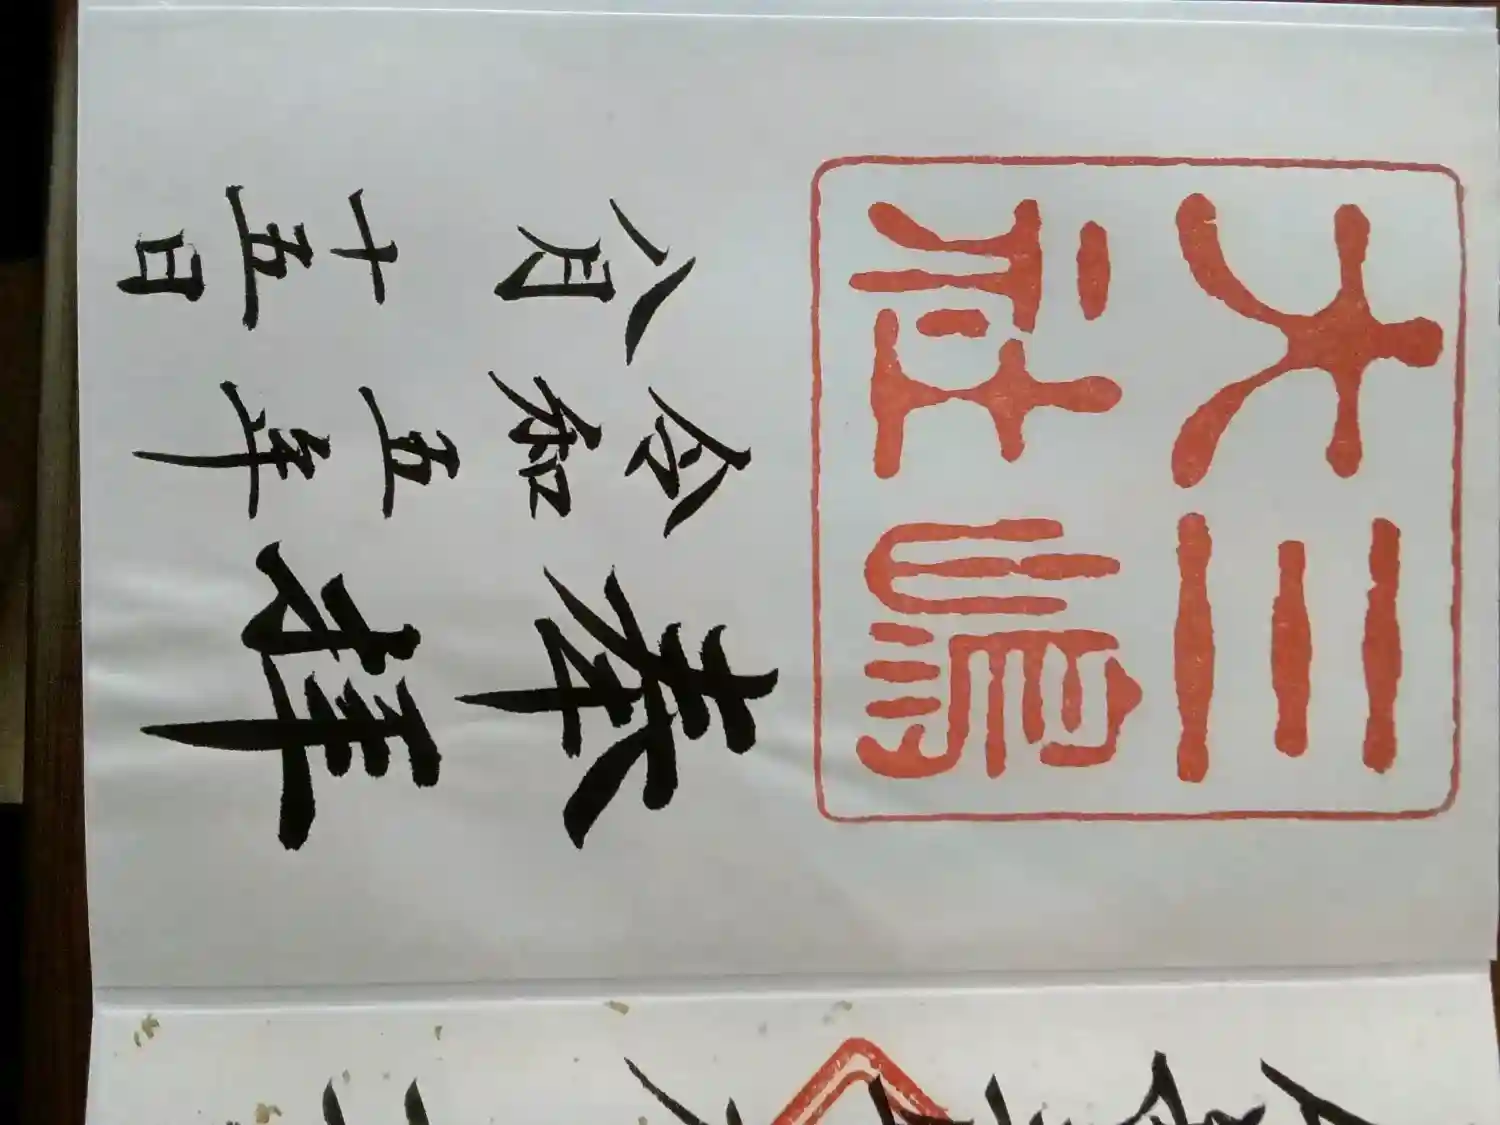 三嶋
大社
奉拝
令和五年
八月十五日